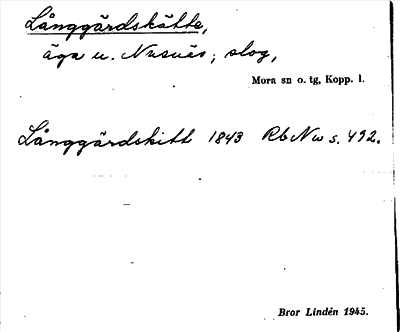 Långgärdskätte,
äga u. Nusnäs; slog,
Mora sn o. tg, Kopp. l.
Långgärdskitt 1843 Rb Nw s. 492.
Bror Lindén 1945.